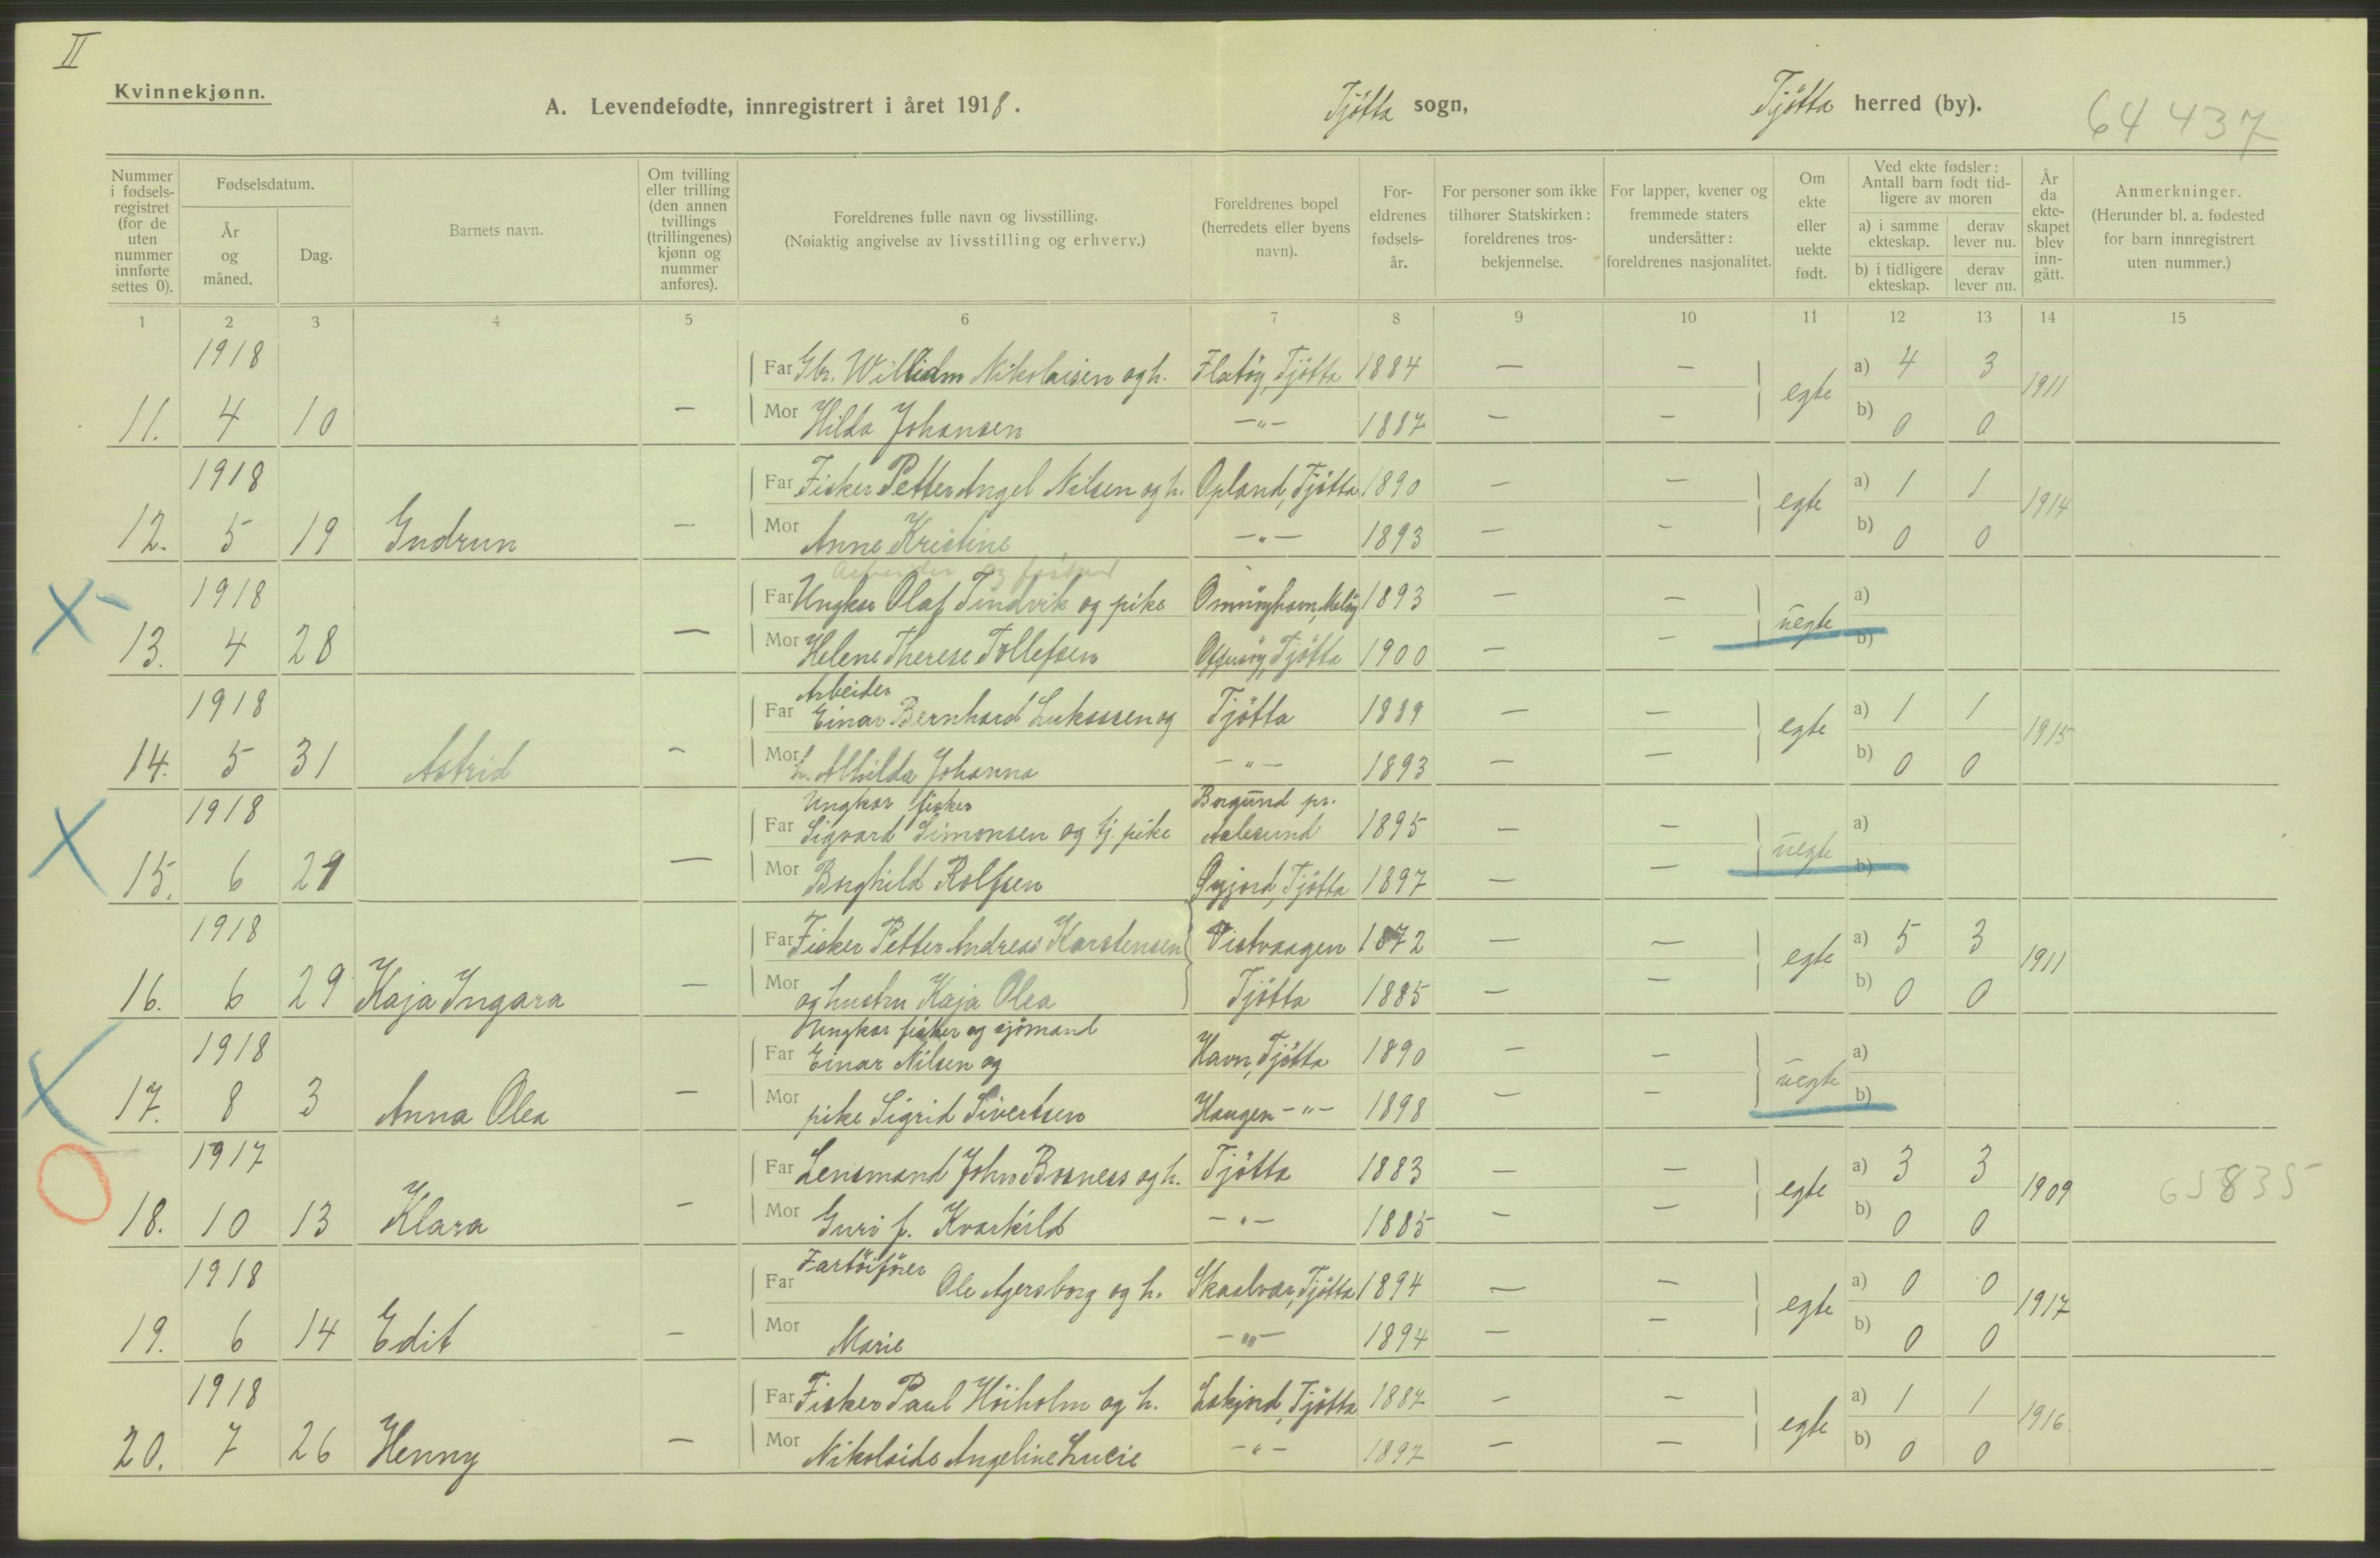 II
Kvinnekjønn.
A. Levendefødte, innregistrert i året 1918.
Tjötta sogn,
Tjötta herred (by).
64 437
Nummer i fødsels- registret (for de uten nummer innførte settes 0).
Fødselsdatum.
År og måned.
Dag.
Barnets navn.
Om tvilling eller trilling (den annen tvillings (trillingenes) kjønn og nummer anføres).
Foreldrenes fulle navn og livsstilling.
(Nøiaktig angivelse av livsstilling og erhverv.)
Foreldrenes bopel (herredets eller byens navn).
For- eldrenes fødsels- år.
For personer som ikke tilhører Statskirken: foreldrenes tros- bekjennelse.
For lapper, kvener og fremmede staters undersåtter: foreldrenes nasjonalitet.
Om ekte eller uekte født.
Ved ekte fødsler: Antall barn født tid- ligere av moren
a) i samme ekteskap.
derav lever nu.
b) i tidligere ekteskap.
derav lever nu.
År da ekte- skapet blev inn- gått.
Anmerkninger.
(Herunder bl. a. fødested for barn innregistrert uten nummer.)
1 2 3 4 5 6 7 8 9 10 11 12 13 14 15
1918 Far Gbr. Willielm Nikolaisen og h. Flatöy, Tjötta 1884 — — egte a) 4 3 1911
11. 4 10 — Mor Hilda Johansen —"— 1887 — — b) 0 0
1918 Far Fisker Petter Angel Nilsen og h. Opland, Tjötta 1890 — — egte a) 1 1 1914
12. 5 19 Gudrun — Mor Anne Kristine —"— 1893 — — b) 0 0
Arbeider og
1918 Far Ungkar Olaf Tindvik og pike 1893 — — uegte a)
13. 4 28 — Mor Helene Therese Tollefsen Offersöy, Tjötta 1900 — — b)
Arbeider
1918 Far Einar Bernhard Lukassen og Tjötta 1889 — — egte a) 1 1 1915
14. 5 31 Astrid — Mor h. Alhilda Johanna —"— 1893 — — b) 0 0
Ungkar fisker Borgund pr.
1918 Far Sigvard Simonsen og tj. pike Aalesund 1895 — — uegte a)
15. 6 29 — Mor Borghild Rolfsen Øyjord, Tjötta 1897 — — b)
1918 Far Fisker Petter Andreas Karstensen Vistvaagen 1872 — — egte a) 5 3 1911
16. 6 29 Kaja Ingara — Mor og hustru Kaja Olea Tjötta 1885 — — b) 0 0
Ungkar fisker og sjömand
1918 Far Einar Nilsen og Havn, Tjötta 1890 — — uegte a)
17. 8 3 Anna Olea — Mor pike Sigrid Sivertsen Haugen —"— 1898 — — b)
1917 Far Lensmand John Bosness og h. Tjötta 1883 — — egte a) 3 3 1909 65835
18. 10 13 Klara — Mor Guri f. Kvarkild —"— 1885 — — b) 0 0
Fartöiförer
1918 Far Ole Agersborg og h. Skaalvær, Tjötta 1894 — — egte a) 0 0 1917
19. 6 14 Edit — Mor Marie —"— 1894 — — b) 0 0
1918 Far Fisker Paul Höiholm og h. Tjötta 1887 — — egte a) 1 1 1916
20. 7 26 Henny — Mor Angeline Lucie —"— 1897 — — b) 0 0